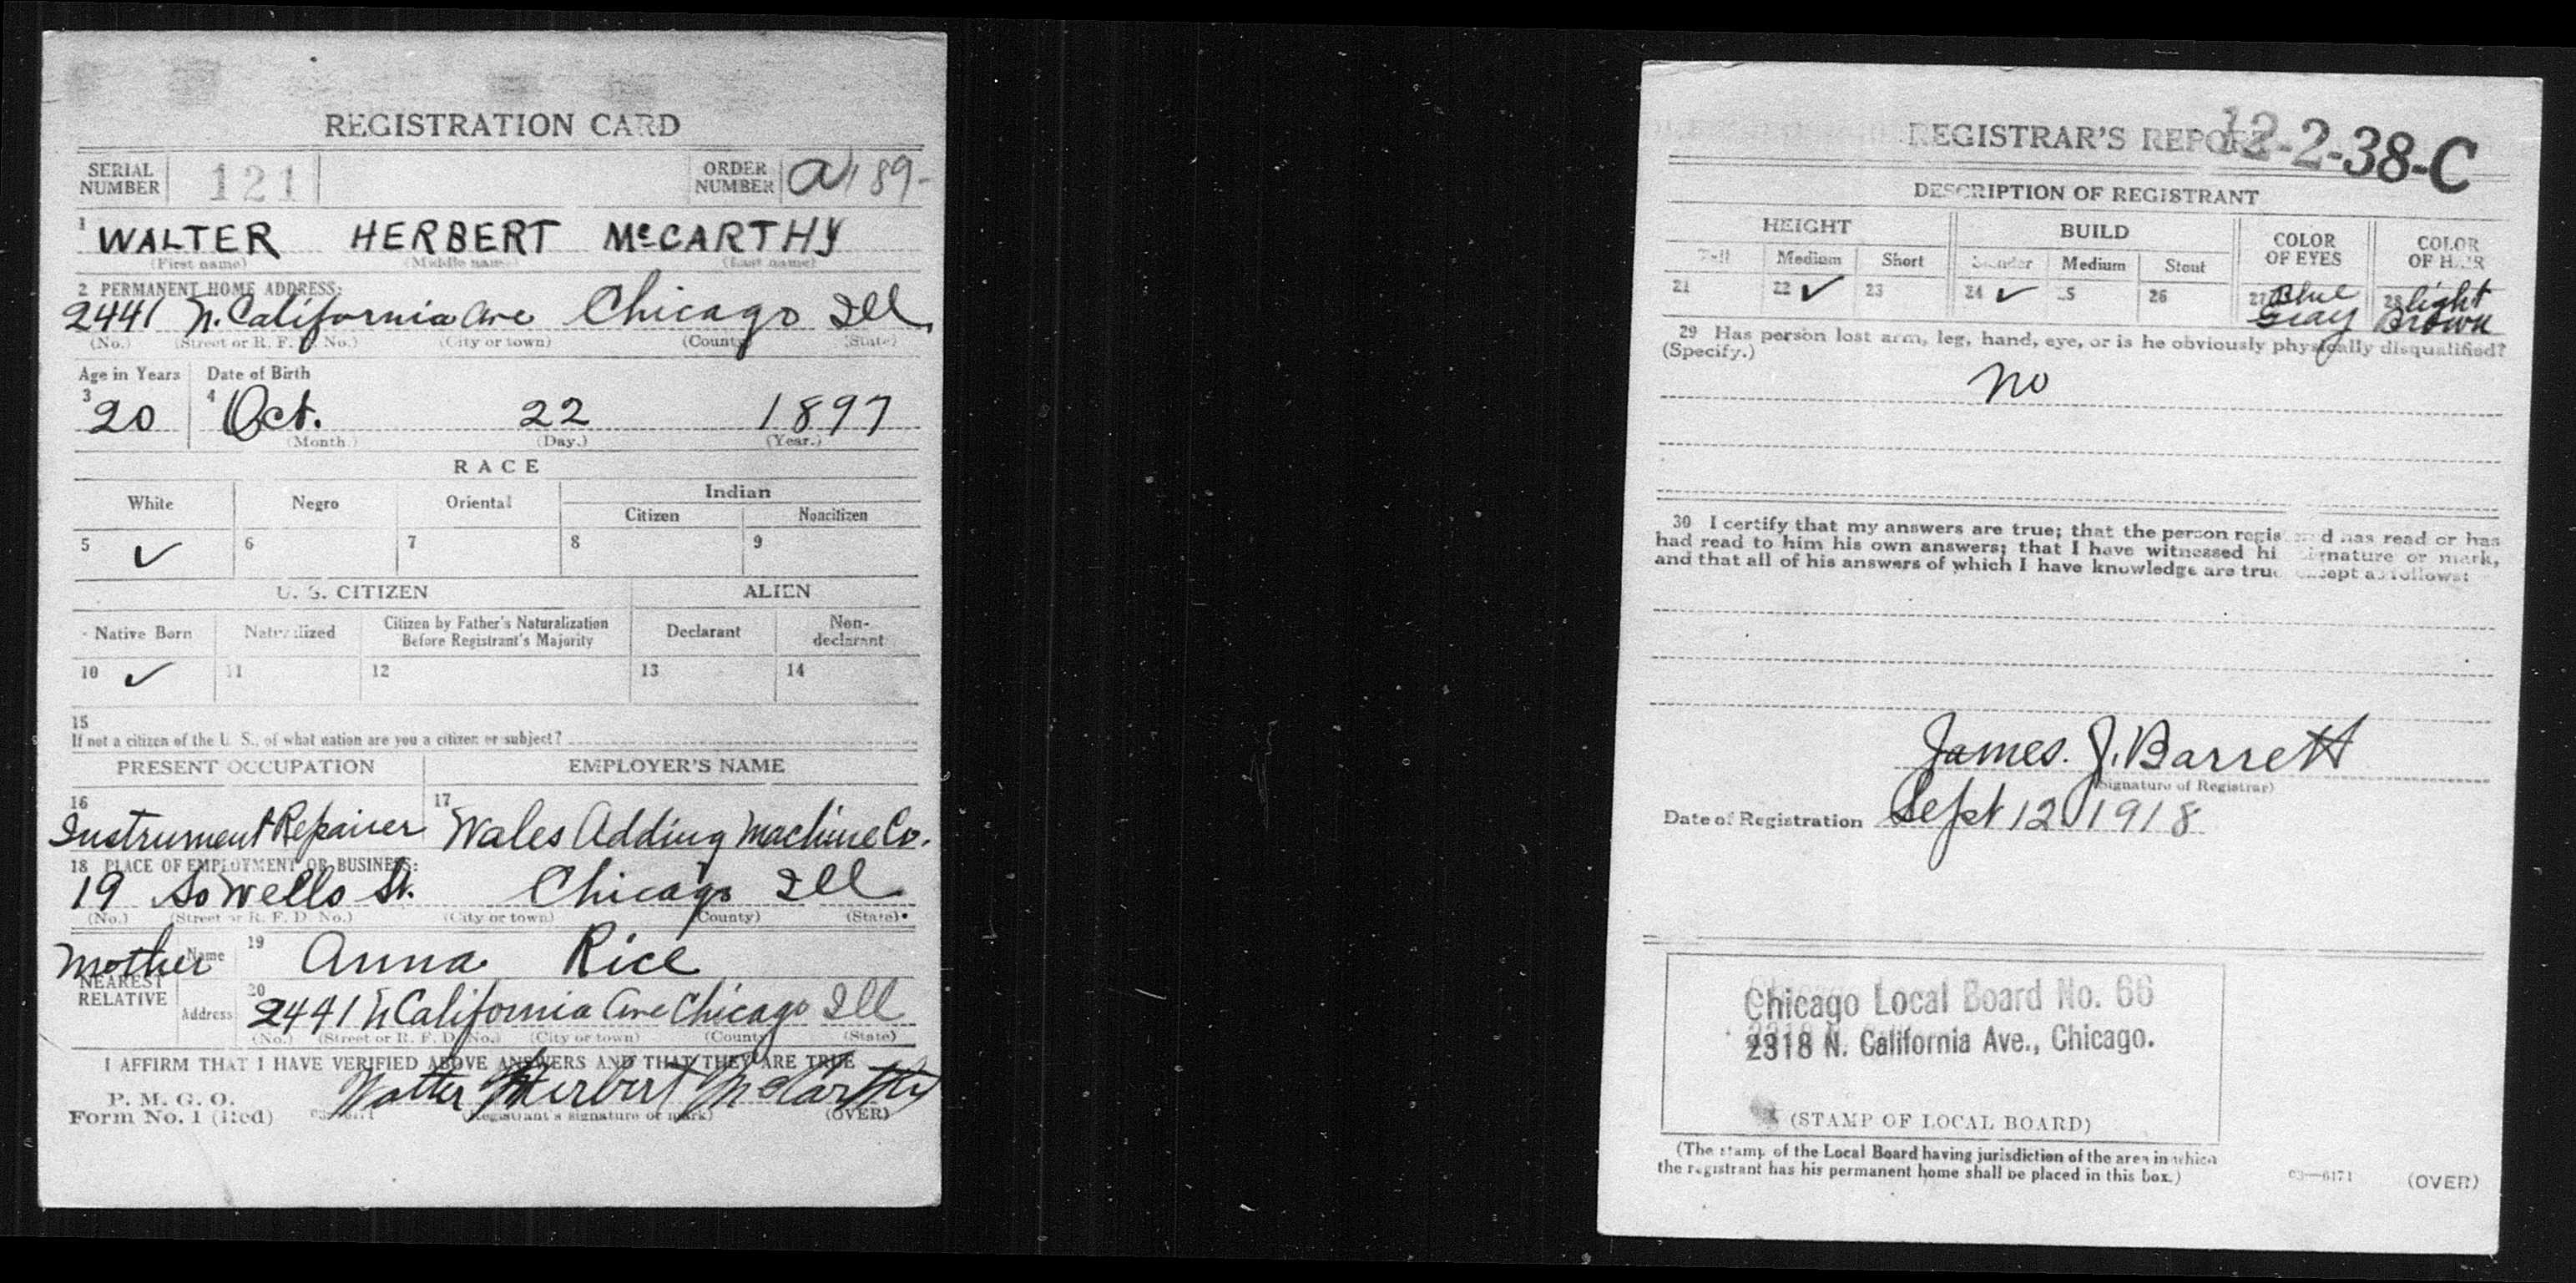 REGISTRATION CARD
SERIAL NUMBER 121 ORDER NUMBER A189-
1 WALTER HERBERT McCARTHY
(First name) (Middle name) (Last name)
2 PERMANENT HOME ADDRESS:
2441 N. California Ave Chicago Ill.
(No.) (Street or R. F. D. No.) (City or town) (County) (State)
Age in Years Date of Birth
3 20 4 Oct. 22 1897
(Month.) (Day.) (Year.)
RACE
White Negro Oriental Indian
Citizen Noncitizen
5 ✓ 6 7 8 9
U. S. CITIZEN ALIEN
Native Born Naturalized Citizen by Father's Naturalization Before Registrant's Majority Declarant Non-declarant
10 ✓ 11 12 13 14
15
If not a citizen of the U. S., of what nation are you a citizen or subject?
PRESENT OCCUPATION EMPLOYER'S NAME
16 Instrument Repairer 17 Wales Adding Machine Co.
18 PLACE OF EMPLOYMENT OR BUSINESS:
19 So Wells St. Chicago Ill
(No.) (Street or R. F. D. No.) (City or town) (County) (State)
Mother Name 19 Anna Rice
NEAREST RELATIVE
Address 20 2441 N California Ave Chicago Ill
(No.) (Street or R. F. D. No.) (City or town) (County) (State)
I AFFIRM THAT I HAVE VERIFIED ABOVE ANSWERS AND THAT THEY ARE TRUE
P. M. G. O.
Form No. 1 (Red) 03-6171 Walter Herbert McCarthy
(Registrant's signature or mark) (OVER)
REGISTRAR'S REPORT 12-2-38-C
DESCRIPTION OF REGISTRANT
HEIGHT BUILD COLOR OF EYES COLOR OF HAIR
Tall Medium Short Slender Medium Stout
21 22 ✓ 23 24 ✓ 25 26 27 Blue Gray 28 light Brown
29 Has person lost arm, leg, hand, eye, or is he obviously physically disqualified?
(Specify.)
no
30 I certify that my answers are true; that the person registered has read or has
had read to him his own answers; that I have witnessed his signature or mark,
and that all of his answers of which I have knowledge are true, except as follows:
James. J. Barrett
(Signature of Registrar)
Date of Registration Sept 12 1918
Chicago Local Board No. 66
2318 N. California Ave., Chicago.
(STAMP OF LOCAL BOARD)
(The stamp of the Local Board having jurisdiction of the area in which
the registrant has his permanent home shall be placed in this box.)
03—6171 (OVER)